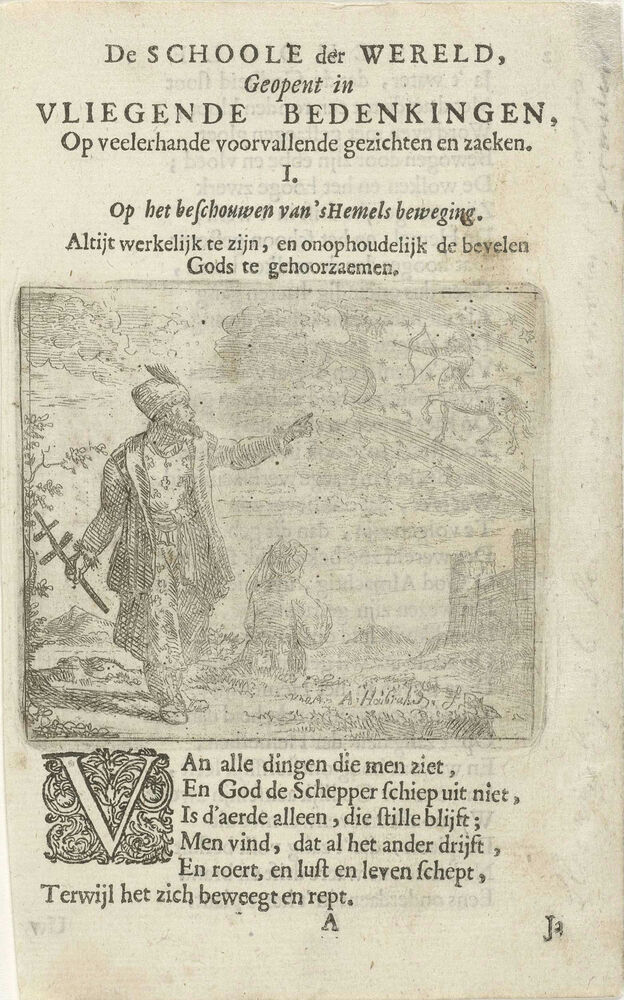 De SCHOOLE der WERELD,
Geopent in
VLIEGENDE BEDENKINGEN,
Op veelerhande voorvallende gezichten en zaeken.
I.
Op het beſchouwen van 'sHemels beweging.
Altijt werkelijk te zijn, en onophoudelijk de bevelen
Gods te gehoorzaemen.
VAn alle dingen die men ziet,
En God de Schepper ſchiep uit niet,
Is d'aerde alleen, die ſtille blijft;
Men vind, dat al het ander drijft,
En roert, en luſt en leven ſchept,
Terwijl het zich beweegt en rept.
A